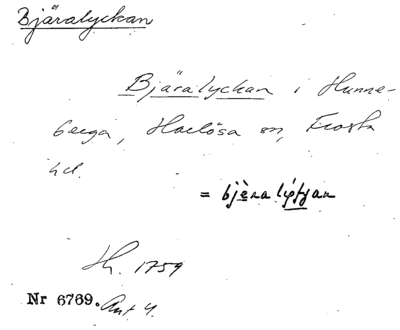 Bjäralyckan
Bjäralyckan i Hunne-
berga, Harlösa sn, Frosta
hd.
= bjèra lýkkan
Hr. 1759
Nr 6769. Ant 4.